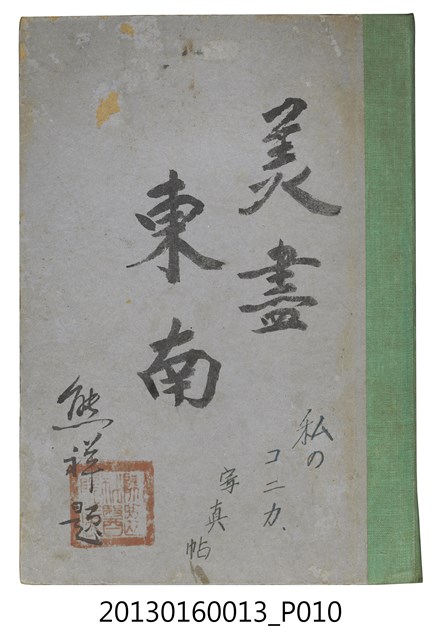 美盡
東南
熊祥題
私の
コニカ、
写真
帖
20130160013_P010